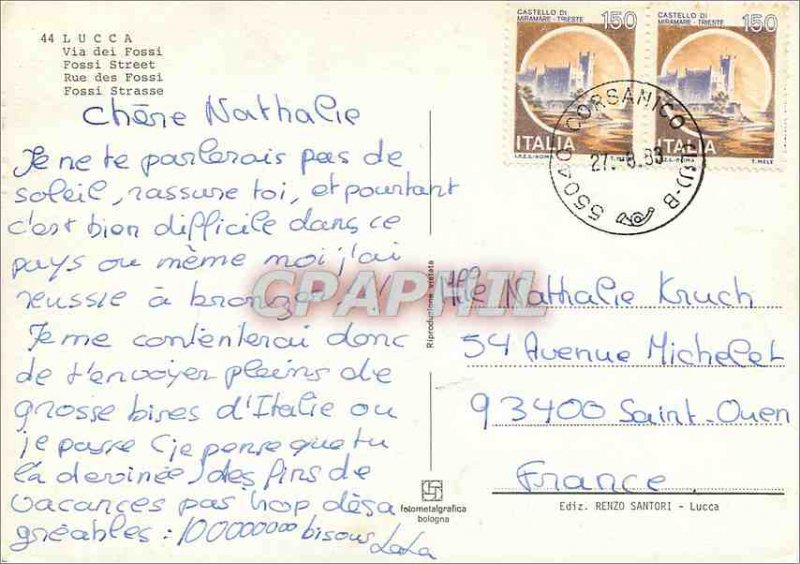 44 LUCCA
Via dei Fossi
Fossi Street
Rue des Fossi
Fossi Strasse
chère Nathalie
Je ne te parlerais pas de
soleil, rassure toi, et pourtant
c'est bien difficile dans ce
pays ou même moi j'ai
reussie à bronzer
Je me contenterai donc
de t'envoyer pleins de
grosse bises d'Italie ou
je passe (je pense que tu
la devinée) des fins de
vacances pas trop désa
gréables : 100000000 bisous
LaLa
CASTELLO DI
MIRAMARE - TRIESTE
150
ITALIA
I.P.Z.S.-ROMA
CASTELLO DI
MIRAMARE - TRIESTE
150
ITALIA
I.P.Z.S.-ROMA
T. MELE
55040 CORSANICO (LU) - B
Riproduzione vietata
CPAPHIL
Mlle Nathalie Kruch
54 Avenue Michelet
93400 Saint-Ouen
France
fotometalgrafica
bologna
Ediz. RENZO SANTORI - Lucca